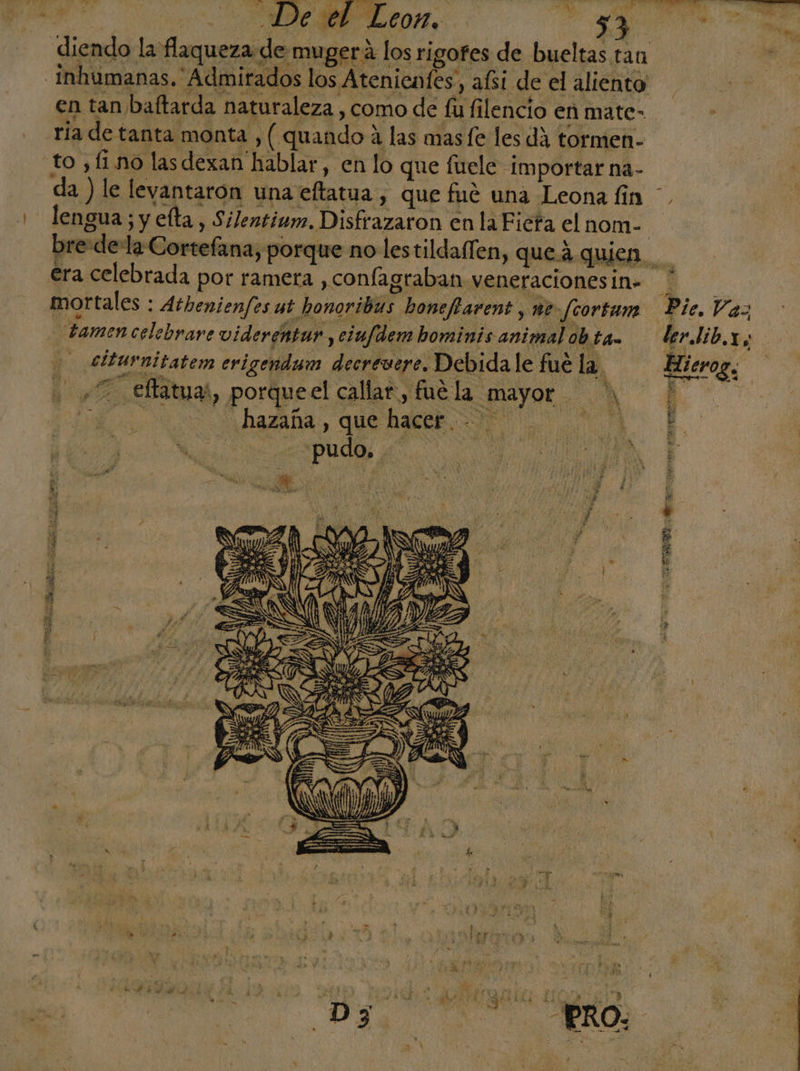 De el Leon. 53
diendo la flaqueza de muger à los rigores de bueltas tan
inhumanas. Admirados los Atenienſes, aſsi de el aliento
en tan baſtarda naturaleza, como de ſu ſilencio en mate-
ria de tanta monta, ( quando à las mas ſe les dà tormen-
to, ſi no las dexan hablar, en lo que ſuele importar na-
da ) le levantaron una eſtatua, que fuè una Leona ſin
lengua; y eſta, Silentium. Disfrazaron en la Fiera el nom-
bre de la Corteſana, porque no les tildaſſen, que à quien
era celebrada por ramera, conſagraban veneraciones in-
mortales : Athenienſes ut honoribus honeſtarent, ne ſcortum
tamen celebrare viderentur, eiuſdem hominis animal ob ta-
citurnitatem erigendum decrevere. Debida le fuè la
eſtatua, porque el callar, fuè la mayor
hazaña, que hacer
pudo.
Pie. Va-
ler.lib.1.
Hierog.
D3 PRO-